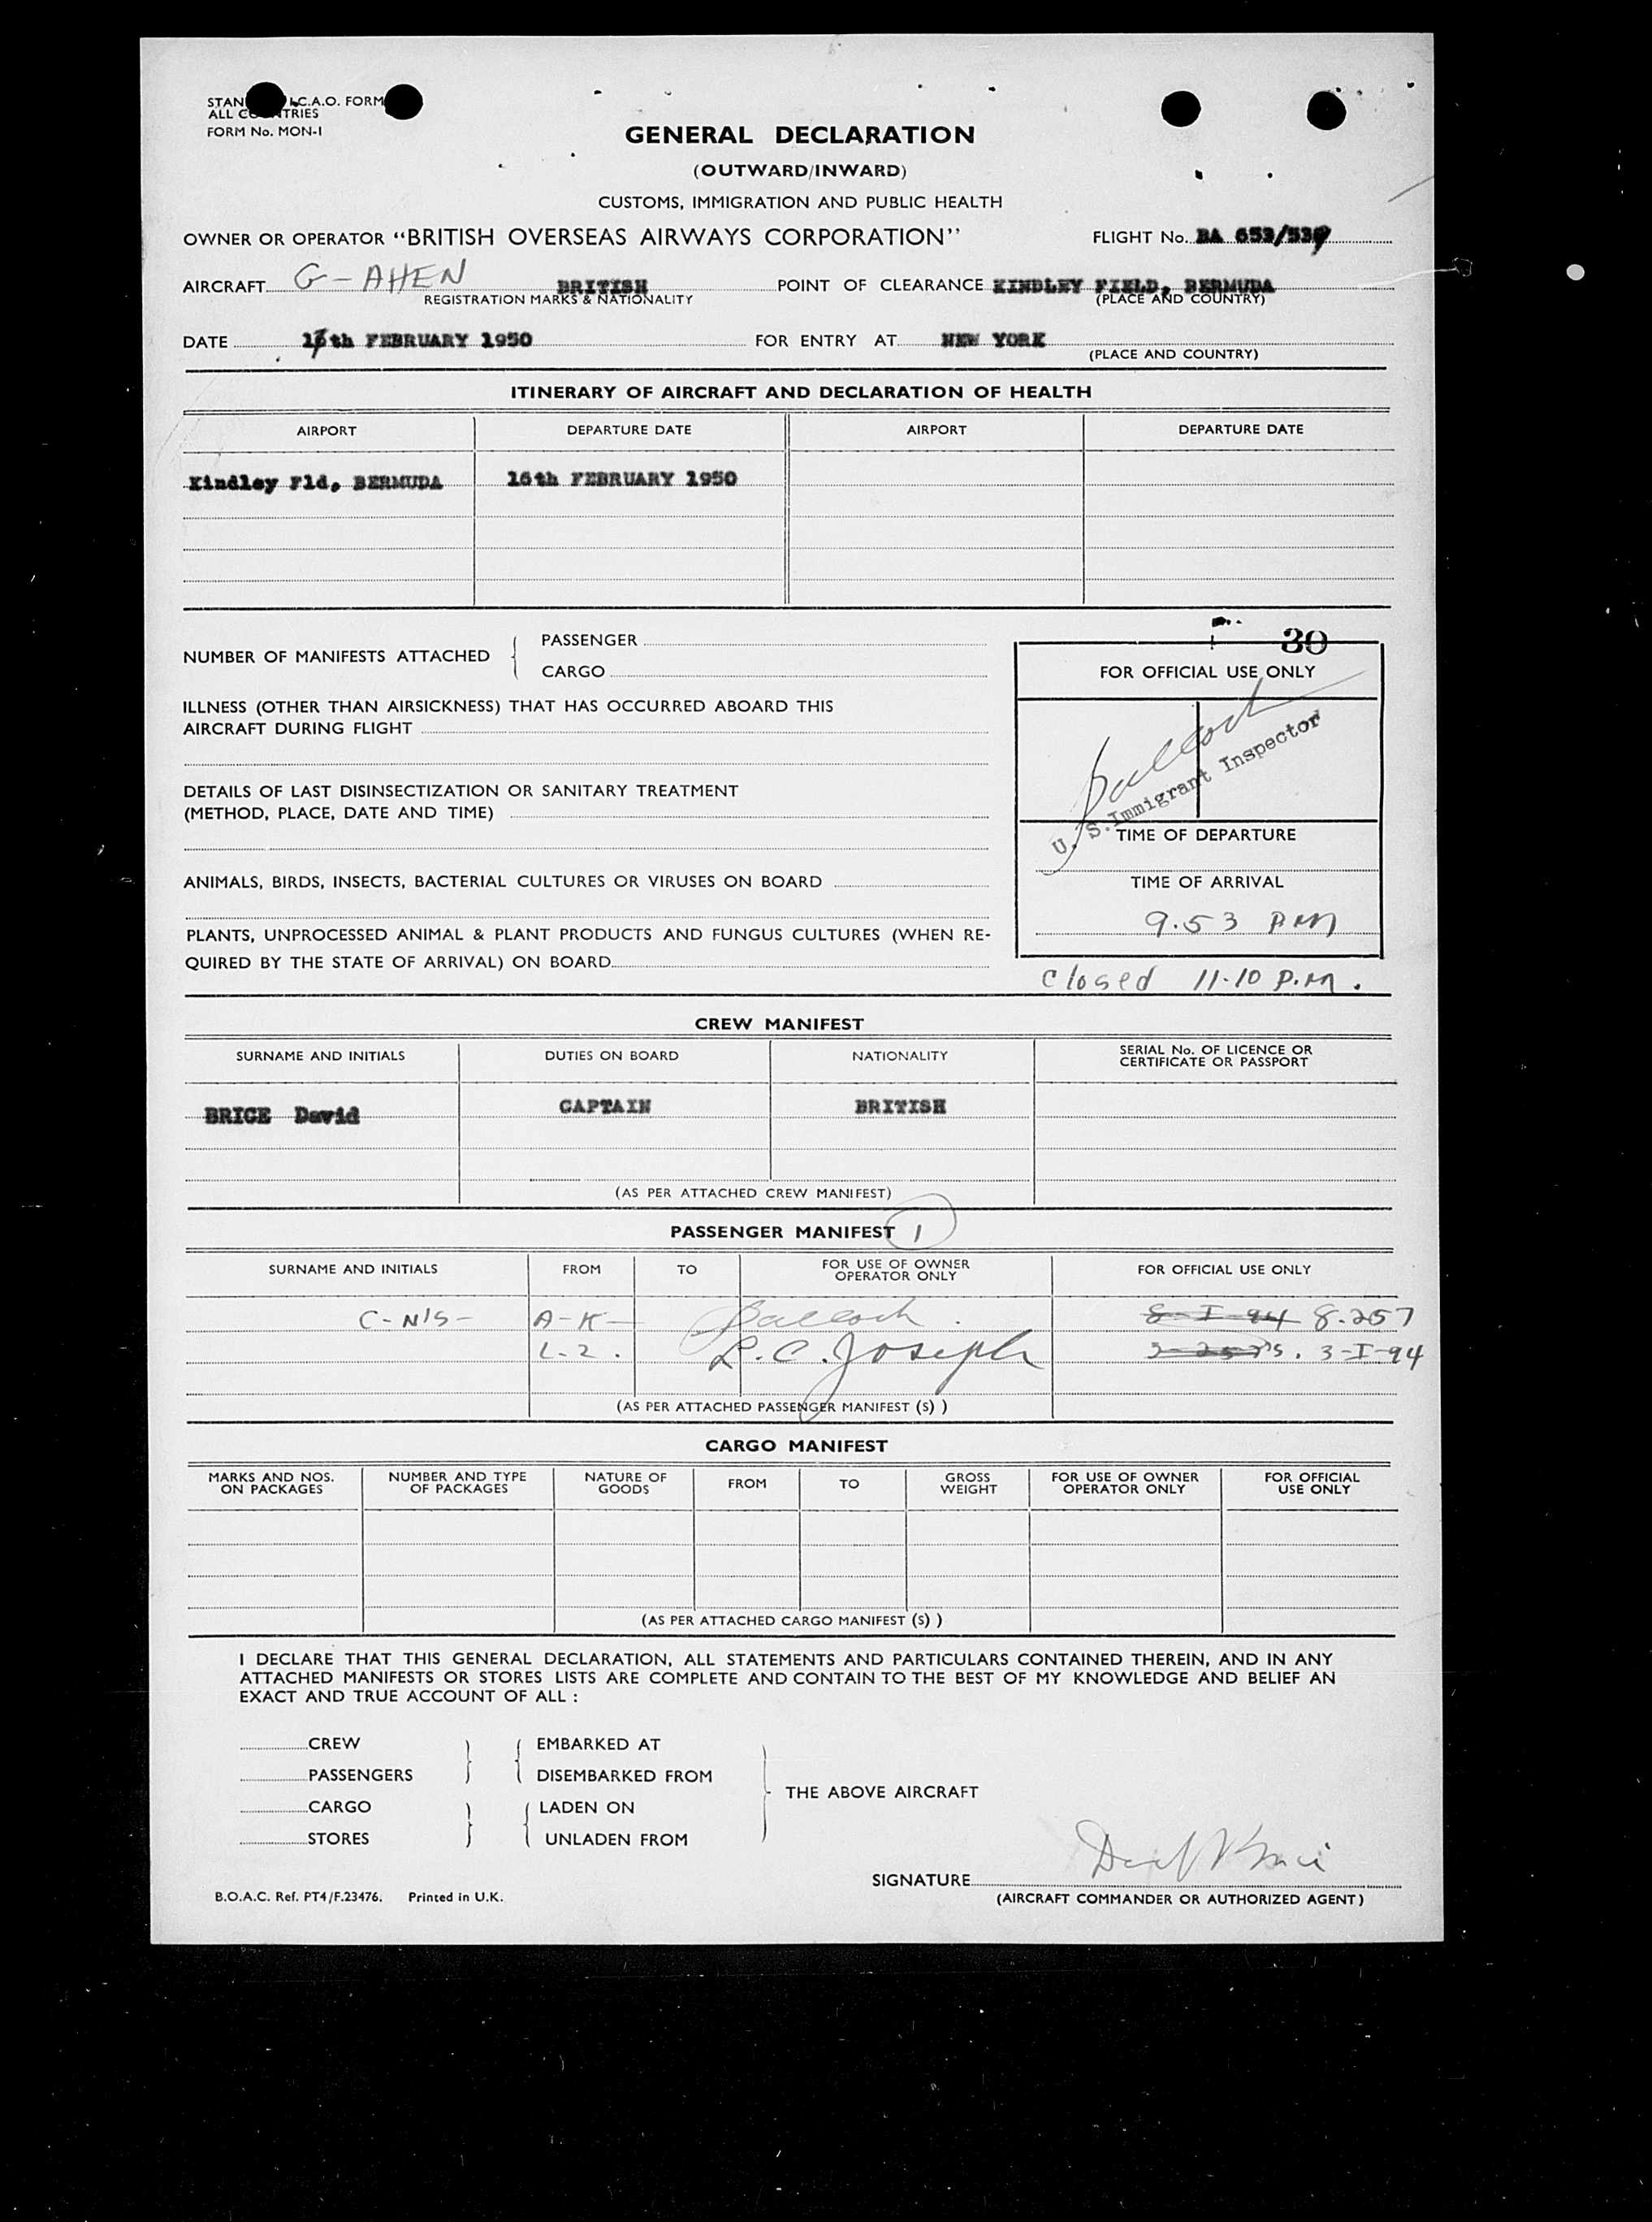 I.C.A.O. FORM
ALL COUNTRIES
FORM No. MON-1
GENERAL DECLARATION
(OUTWARD/INWARD)
CUSTOMS, IMMIGRATION AND PUBLIC HEALTH
OWNER OR OPERATOR "BRITISH OVERSEAS AIRWAYS CORPORATION" FLIGHT No. BA 653/539
AIRCRAFT G-AHEN BRITISH POINT OF CLEARANCE KINDLEY FIELD, BERMUDA
REGISTRATION MARKS & NATIONALITY (PLACE AND COUNTRY)
DATE 17th FEBRUARY 1950 FOR ENTRY AT NEW YORK
(PLACE AND COUNTRY)
ITINERARY OF AIRCRAFT AND DECLARATION OF HEALTH
AIRPORT DEPARTURE DATE AIRPORT DEPARTURE DATE
Kindley Fld, BERMUDA 16th FEBRUARY 1950
30
NUMBER OF MANIFESTS ATTACHED { PASSENGER
CARGO
FOR OFFICIAL USE ONLY
ILLNESS (OTHER THAN AIRSICKNESS) THAT HAS OCCURRED ABOARD THIS
AIRCRAFT DURING FLIGHT
Balloch
U. S. Immigrant Inspector
DETAILS OF LAST DISINSECTIZATION OR SANITARY TREATMENT
(METHOD, PLACE, DATE AND TIME)
TIME OF DEPARTURE
ANIMALS, BIRDS, INSECTS, BACTERIAL CULTURES OR VIRUSES ON BOARD
TIME OF ARRIVAL
9.53 PM
PLANTS, UNPROCESSED ANIMAL & PLANT PRODUCTS AND FUNGUS CULTURES (WHEN RE-
QUIRED BY THE STATE OF ARRIVAL) ON BOARD
Closed 11-10 P.M.
CREW MANIFEST
SURNAME AND INITIALS DUTIES ON BOARD NATIONALITY SERIAL No. OF LICENCE OR
CERTIFICATE OR PASSPORT
BRICE David CAPTAIN BRITISH
(AS PER ATTACHED CREW MANIFEST)
PASSENGER MANIFEST 1
SURNAME AND INITIALS FROM TO FOR USE OF OWNER
OPERATOR ONLY FOR OFFICIAL USE ONLY
C-N/S- A-K- Balloch. 8-I-94 8.257
L-Z. L.C. Joseph 3-I-94
(AS PER ATTACHED PASSENGER MANIFEST (S) )
CARGO MANIFEST
MARKS AND NOS.
ON PACKAGES NUMBER AND TYPE
OF PACKAGES NATURE OF
GOODS FROM TO GROSS
WEIGHT FOR USE OF OWNER
OPERATOR ONLY FOR OFFICIAL
USE ONLY
(AS PER ATTACHED CARGO MANIFEST (S) )
I DECLARE THAT THIS GENERAL DECLARATION, ALL STATEMENTS AND PARTICULARS CONTAINED THEREIN, AND IN ANY
ATTACHED MANIFESTS OR STORES LISTS ARE COMPLETE AND CONTAIN TO THE BEST OF MY KNOWLEDGE AND BELIEF AN
EXACT AND TRUE ACCOUNT OF ALL :
CREW EMBARKED AT
PASSENGERS DISEMBARKED FROM
THE ABOVE AIRCRAFT
CARGO LADEN ON
STORES UNLADEN FROM
SIGNATURE David Brice
B.O.A.C. Ref. PT4/F.23476. Printed in U.K. (AIRCRAFT COMMANDER OR AUTHORIZED AGENT)